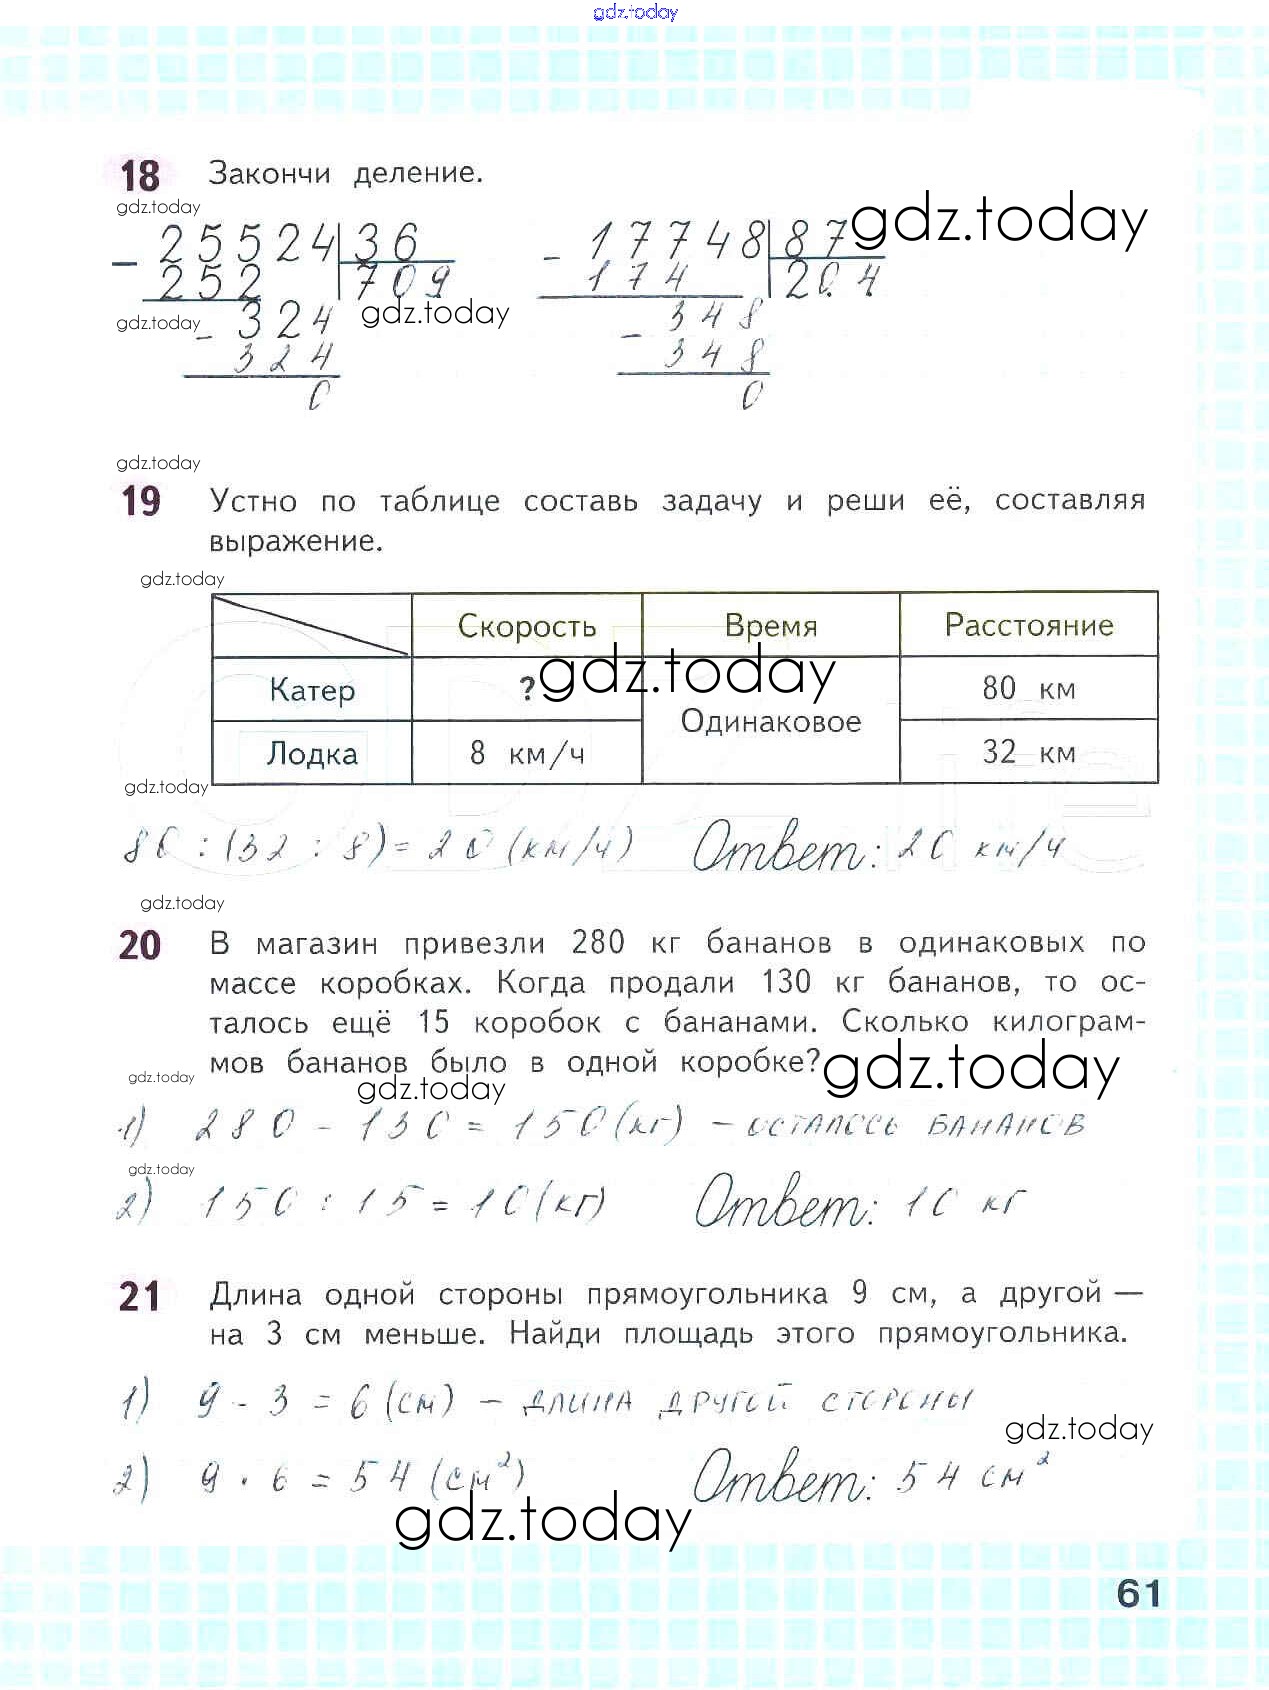 gdz.today
18 Закончи деление.
gdz.today
- 25524 36
- 17748 87
gdz.today
252 709
174 204
gdz.today
- 324
gdz.today
348
324
- 348
0
0
gdz.today
19 Устно по таблице составь задачу и реши её, составляя
выражение.
gdz.today
Скорость Время Расстояние
Катер ? Одинаковое 80 км
gdz.today
Лодка 8 км/ч 32 км
gdz.today
80 : (32 : 8) = 20 (км/ч) Ответ: 20 км/ч
gdz.today
20 В магазин привезли 280 кг бананов в одинаковых по
массе коробках. Когда продали 130 кг бананов, то ос-
талось ещё 15 коробок с бананами. Сколько килограм-
мов бананов было в одной коробке?
gdz.today
gdz.today
gdz.today
1) 280 - 130 = 150 (кг) - осталось бананов
gdz.today
2) 150 : 15 = 10 (кг) Ответ: 10 кг
21 Длина одной стороны прямоугольника 9 см, а другой —
на 3 см меньше. Найди площадь этого прямоугольника.
1) 9 - 3 = 6 (см) - длина другой стороны
gdz.today
2) 9 · 6 = 54 (см²) Ответ: 54 см²
gdz.today
61